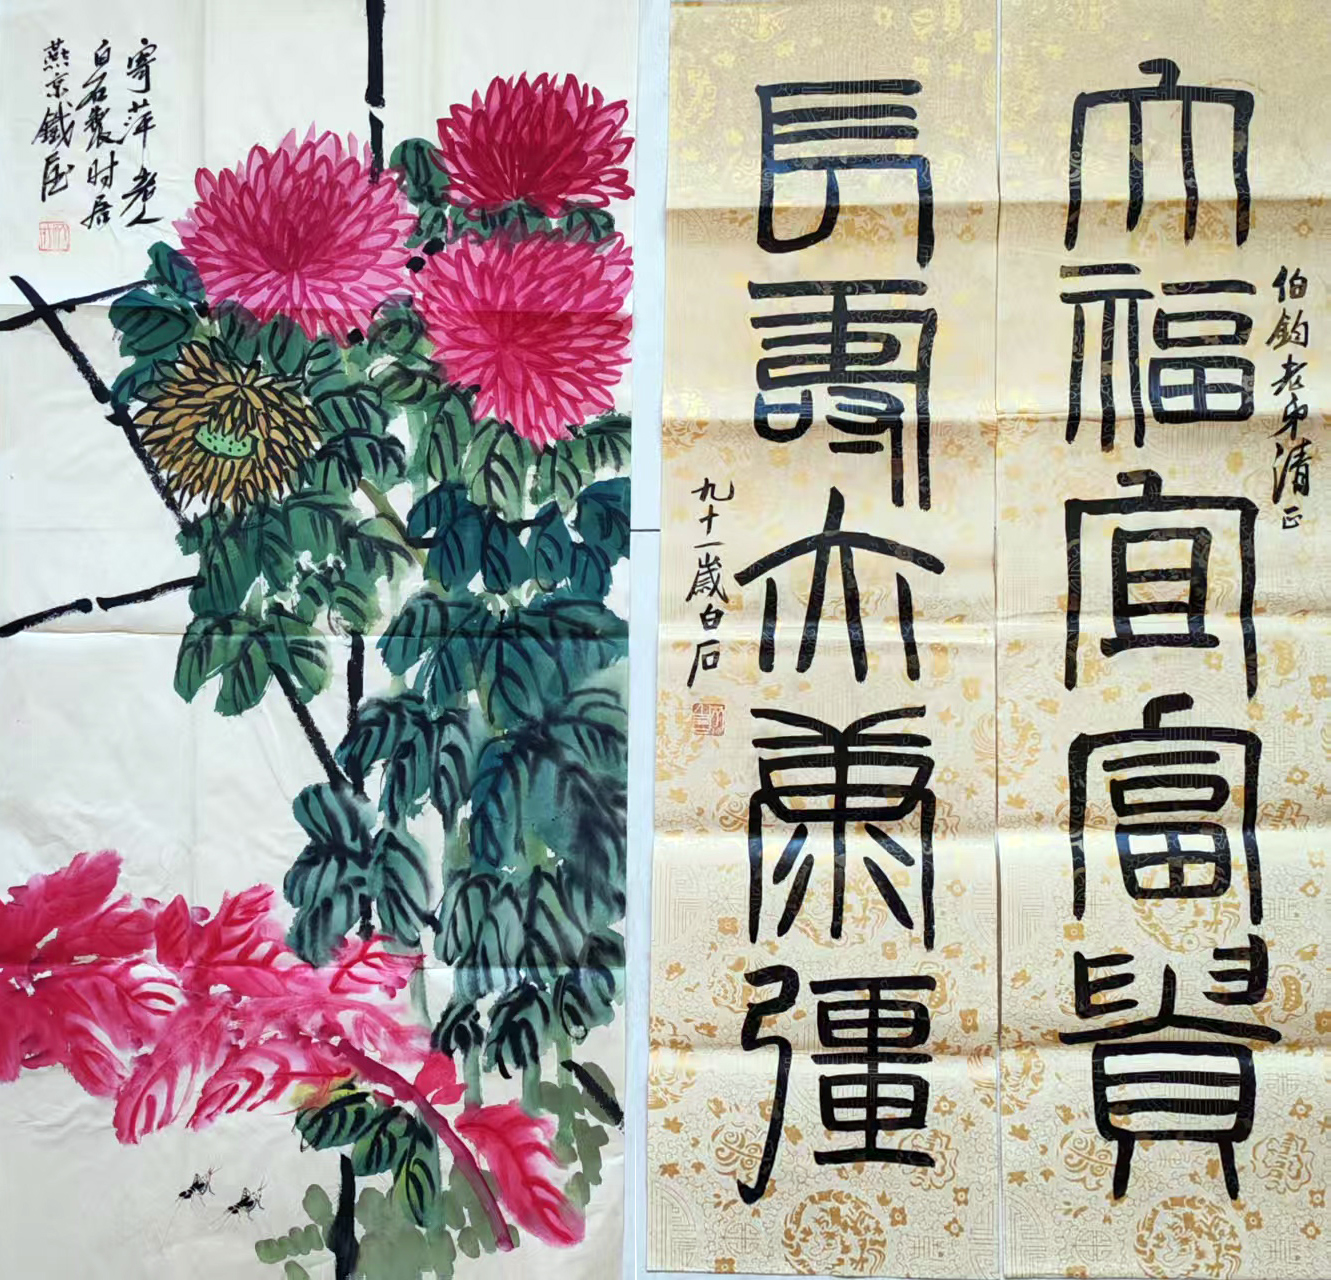 寄萍老人
白石製时居
燕京鐵屋
大福宜富貴
伯鈞老弟清正
長壽亦康彊
九十一歲白石